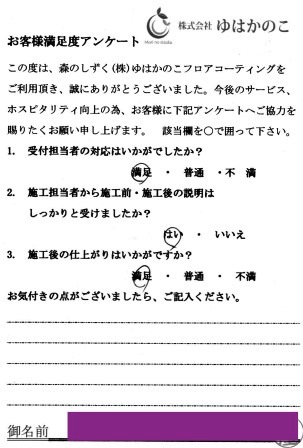 株式会社 ゆはかのこ
お客様満足度アンケート
この度は、森のしずく(株)ゆはかのこフロアコーティングを
ご利用頂き、誠にありがとうございました。今後のサービス、
ホスピタリティ向上の為、お客様に下記アンケートへご協力を
賜りたくお願い申し上げます。 該当欄を〇で囲って下さい。
1. 受付担当者の対応はいかがでしたか?
満足 ・ 普通 ・不 満
2. 施工担当者から施工前・施工後の説明は
しっかりと受けましたか?
はい ・ いいえ
3. 施工後の仕上がりはいかがですか?
満足 ・ 普通 ・ 不満
お気付きの点がございましたら、ご記入ください。
御名前